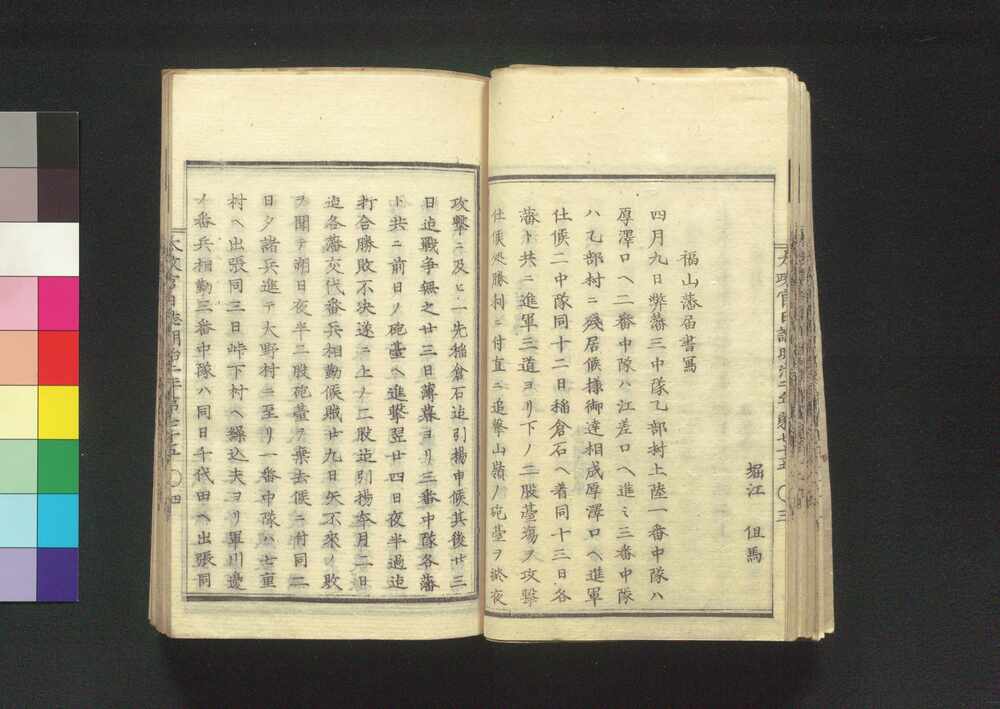 堀江 伹馬
福山藩届書寫
四月九日弊藩三中隊乙部村上陸一番中隊ハ
厚澤口ヘ二番中隊ハ江差口ヘ進ミ三番中隊
ハ乙部村ニ殘居候様御達相成厚澤口ヘ進軍
仕候二中隊同十二日稲倉石ヘ着同十三日各
藩ト共ニ進軍三道ヨリ下ノ二股臺塲ヲ攻撃
仕候処勝利ニ付直ニ追撃山嶺ノ砲臺ヲ終夜
太政官日誌明治二年第七十五 〇三
攻撃ニ及ヒ一先稲倉石迠引揚申候其後廿三
日迠戰争無之廿三日薄暮ヨリ三番中隊各藩
ト共ニ前日ノ砲臺ヘ進撃翌廿四日夜半過迠
打合勝敗不決遂ニ上ノ二股迠引揚本月二日
迠各藩交代番兵相勤候賊廿九日矢不來ノ敗
ヲ聞テ朔日夜半二股砲臺ヲ棄去候ニ付同二
日夕諸兵進テ大野村ニ至リ一番中隊ハ七重
村ヘ出張同三日峠下村ヘ繰込夫ヨリ軍川邊
ノ番兵相勤三番中隊ハ同日千代田ヘ出張同
太政官日誌明治二年第七十五 〇四